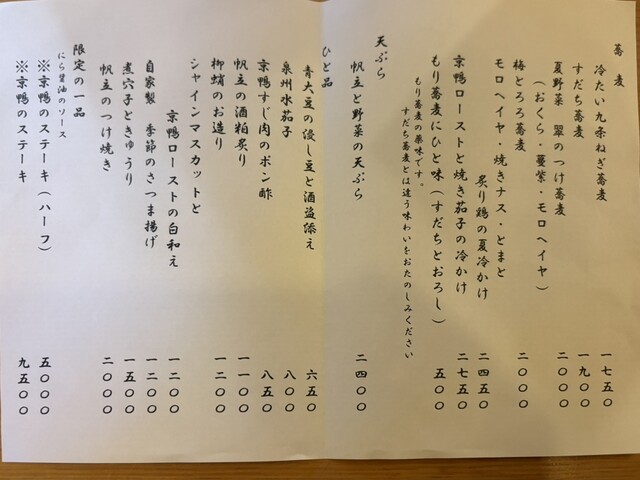 蕎麦
冷たい九条ねぎ蕎麦 一七五〇
すだち蕎麦 一九〇〇
夏野菜 翠のつけ蕎麦 二〇〇〇
（おくら・蔓紫・モロヘイヤ）
梅とろろ蕎麦 二〇〇〇
モロヘイヤ・焼きナス・とまと
炙り鶏の夏冷かけ 二四五〇
京鴨ローストと焼き茄子の冷かけ 二七五〇
もり蕎麦にひと味（すだちとおろし） 五〇〇
もり蕎麦の薬味です。
すだち蕎麦とは違う味わいをおたのしみください
天ぷら
帆立と野菜の天ぷら 二四〇〇
ひと品
青大豆の浸し豆と酒盗添え 六五〇
泉州水茄子 八〇〇
京鴨すじ肉のポン酢 八五〇
帆立の酒粕炙り 一一〇〇
柳蛸のお造り 一二〇〇
シャインマスカットと
京鴨ローストの白和え 一二〇〇
自家製 季節のさつま揚げ 一二〇〇
煮穴子ときゅうり 一五〇〇
帆立のつけ焼き 二〇〇〇
限定の一品
にら醤油のソース
※京鴨のステーキ（ハーフ） 五〇〇〇
※京鴨のステーキ 九五〇〇